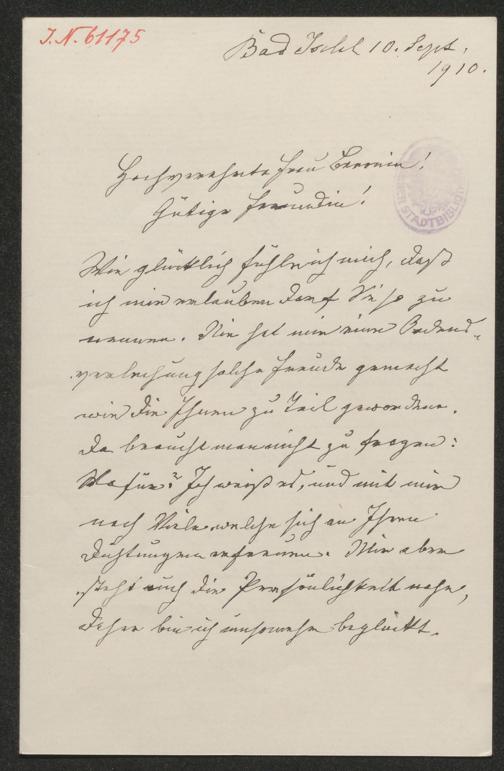 I.N. 61175
Bad Ischl 10. Sept.
1910.
Hochverehrte Frau Baronin!
Gütige Freundin!
Wie glücklich fühle ich mich, daß
ich mir erlauben darf Sie so zu
nennen. Nie hat mir eine Ordens-
verleihung solche Freude gemacht
wie die Ihnen zu Teil gewordene.
Da braucht man nicht zu fragen:
Wofür? Ich weiß es, und mit mir
noch Viele welche sich an Ihren
Dichtungen erfreuen. Mir aber
steht auch die Persönlichkeit nahe,
daher bin ich umsomehr beglückt.
STADTBIBLIOTHEK